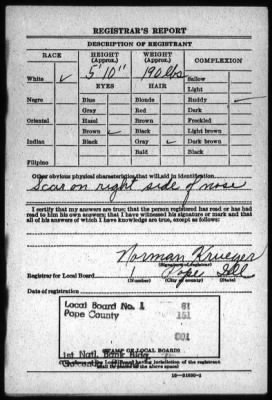 REGISTRAR'S REPORT
DESCRIPTION OF REGISTRANT
RACE HEIGHT (Approx.) WEIGHT (Approx.) COMPLEXION
White ✓ 5'10" 190 lbs Sallow
EYES HAIR Light
Negro Blue Blonde Ruddy ✓
Gray Red Dark
Oriental Hazel Brown Freckled
Brown ✓ Black Light brown
Indian Black Gray ✓ Dark brown
Bald Black
Filipino
Other obvious physical characteristics that will aid in identification
Scar on right side of nose
I certify that my answers are true; that the person registered has read or has had
read to him his own answers; that I have witnessed his signature or mark and that
all of his answers of which I have knowledge are true, except as follows:
Norman Krueger
(Signature of registrar)
Registrar for Local Board 1 Pope Ill
(Number) (City or county) (State)
Date of registration
Local Board No. 1 81
Pope County 151
001
1st Natl. Bank Bldg.
(STAMP OF LOCAL BOARD)
(The stamp of the Local Board having jurisdiction of the registrant
shall be placed in the above space)